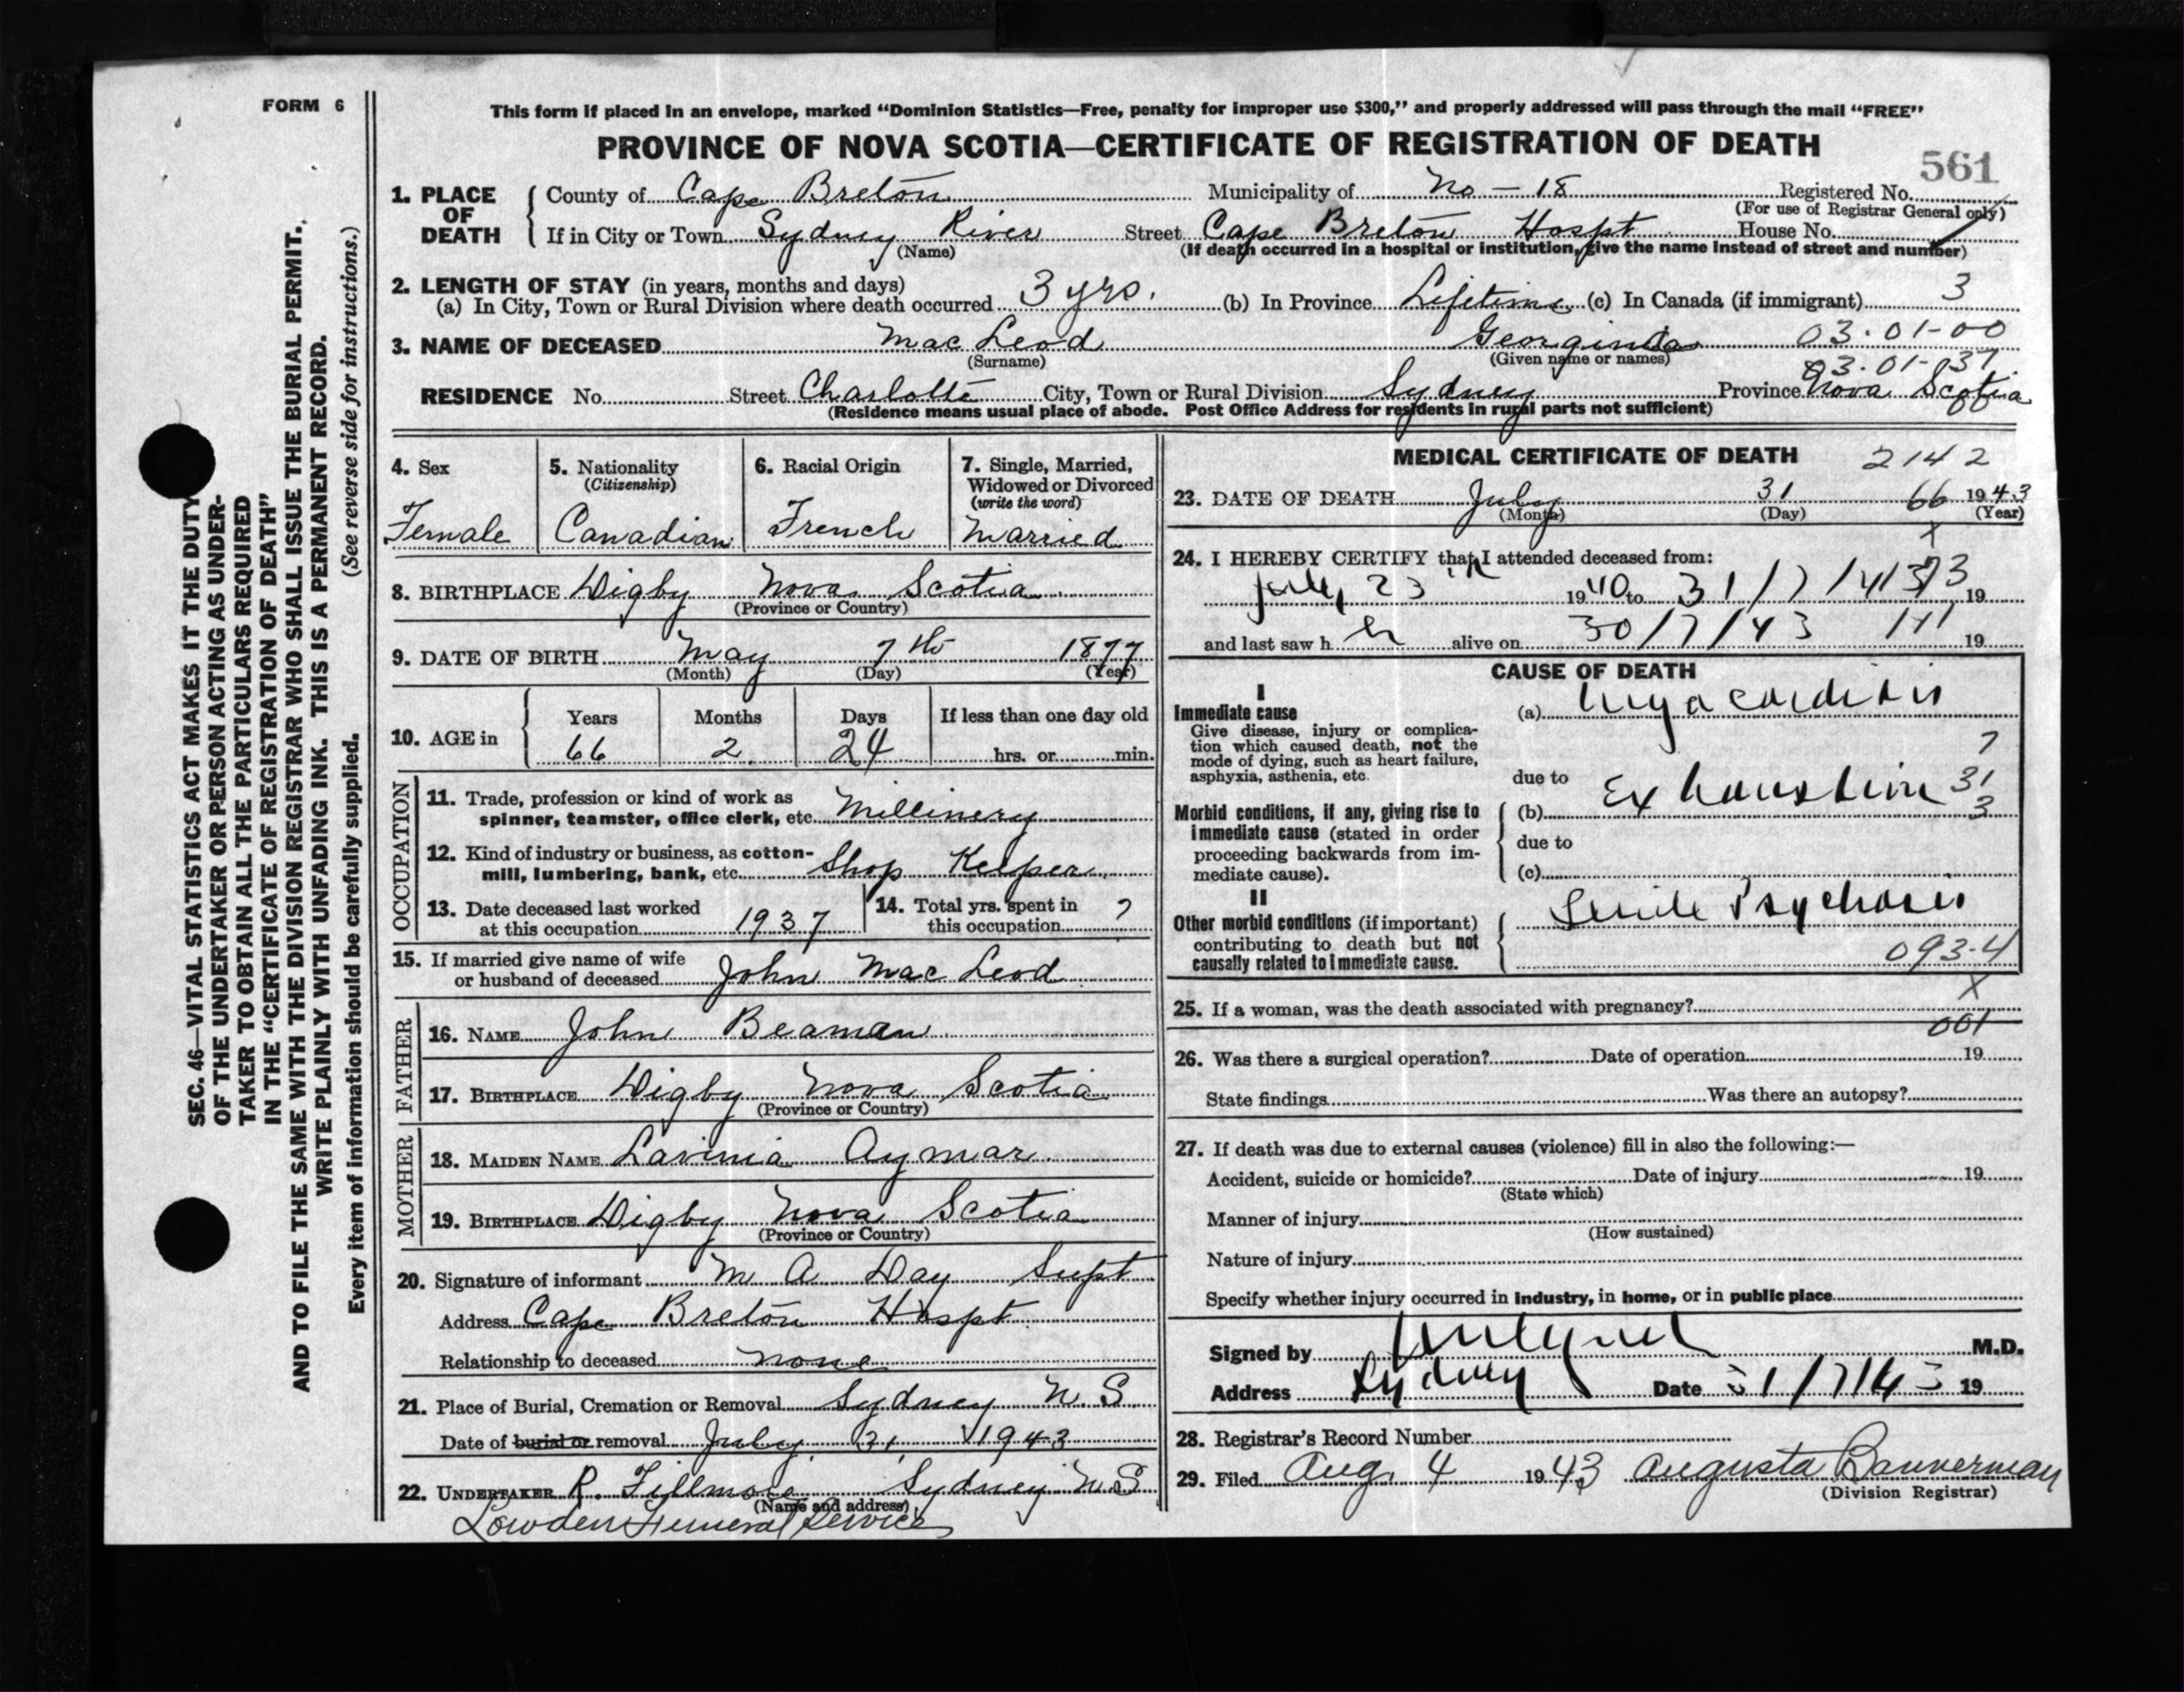 FORM 6
This form if placed in an envelope, marked “Dominion Statistics—Free, penalty for improper use $300,” and properly addressed will pass through the mail “FREE”
PROVINCE OF NOVA SCOTIA—CERTIFICATE OF REGISTRATION OF DEATH
561
1. PLACE OF DEATH County of Cape Breton Municipality of No – 18 Registered No.
(For use of Registrar General only)
If in City or Town Sydney River Street Cape Breton Hospt House No.
(Name) (If death occurred in a hospital or institution, give the name instead of street and number)
2. LENGTH OF STAY (in years, months and days)
(a) In City, Town or Rural Division where death occurred 3 yrs. (b) In Province Lifetime (c) In Canada (if immigrant) 3
3. NAME OF DECEASED Mac Leod Georginia 03.01-00
(Surname) (Given name or names) 03.01-037
RESIDENCE No. Street Charlotte City, Town or Rural Division Sydney Province Nova Scotia
(Residence means usual place of abode. Post Office Address for residents in rural parts not sufficient)
SEC. 46—VITAL STATISTICS ACT MAKES IT THE DUTY
OF THE UNDERTAKER OR PERSON ACTING AS UNDER-
TAKER TO OBTAIN ALL THE PARTICULARS REQUIRED
IN THE “CERTIFICATE OF REGISTRATION OF DEATH”
AND TO FILE THE SAME WITH THE DIVISION REGISTRAR WHO SHALL ISSUE THE BURIAL PERMIT.
WRITE PLAINLY WITH UNFADING INK. THIS IS A PERMANENT RECORD.
Every item of information should be carefully supplied. (See reverse side for instructions.)
4. Sex 5. Nationality 6. Racial Origin 7. Single, Married,
(Citizenship) Widowed or Divorced
(write the word)
Female Canadian French Married
8. BIRTHPLACE Digby Nova Scotia
(Province or Country)
9. DATE OF BIRTH May 7th 1877
(Month) (Day) (Year)
10. AGE in Years Months Days If less than one day old
66 2 24 hrs. or min.
OCCUPATION
11. Trade, profession or kind of work as
spinner, teamster, office clerk, etc. Millinery
12. Kind of industry or business, as cotton-
mill, lumbering, bank, etc. Shop Keeper
13. Date deceased last worked
at this occupation 1937
14. Total yrs. spent in
this occupation ?
15. If married give name of wife
or husband of deceased John Mac Leod
FATHER
16. NAME John Beaman
17. BIRTHPLACE Digby Nova Scotia
(Province or Country)
MOTHER
18. MAIDEN NAME Lavinia Aymar
19. BIRTHPLACE Digby Nova Scotia
(Province or Country)
20. Signature of informant M A Day Supt
Address Cape Breton Hospt
Relationship to deceased none
21. Place of Burial, Cremation or Removal Sydney N. S.
Date of burial or removal July 31, 1943
22. UNDERTAKER R. Fillmore Sydney N.S.
(Name and address)
Lowden Funeral Service
MEDICAL CERTIFICATE OF DEATH 2142
23. DATE OF DEATH July 31 66 1943
(Month) (Day) (Year)
X
24. I HEREBY CERTIFY that I attended deceased from:
July 23 1940 to 31/7/43 19
and last saw her alive on 30/7/43 19
CAUSE OF DEATH
I
Immediate cause
Give disease, injury or complica-
tion which caused death, not the
mode of dying, such as heart failure,
asphyxia, asthenia, etc.
(a) Myocarditis
7
due to
31
Morbid conditions, if any, giving rise to
immediate cause (stated in order
proceeding backwards from im-
mediate cause).
(b) Exhaustion 3
due to
(c)
II
Other morbid conditions (if important)
contributing to death but not
causally related to immediate cause.
Senile Psychosis
093-4
X
25. If a woman, was the death associated with pregnancy?
001
26. Was there a surgical operation? Date of operation 19
State findings Was there an autopsy?
27. If death was due to external causes (violence) fill in also the following:—
Accident, suicide or homicide? Date of injury 19
(State which)
Manner of injury
(How sustained)
Nature of injury
Specify whether injury occurred in Industry, in home, or in public place
Signed by M.D.
Address Sydney Date 31/7/43 19
28. Registrar's Record Number
29. Filed Aug. 4 1943 Augusta Bannerman
(Division Registrar)